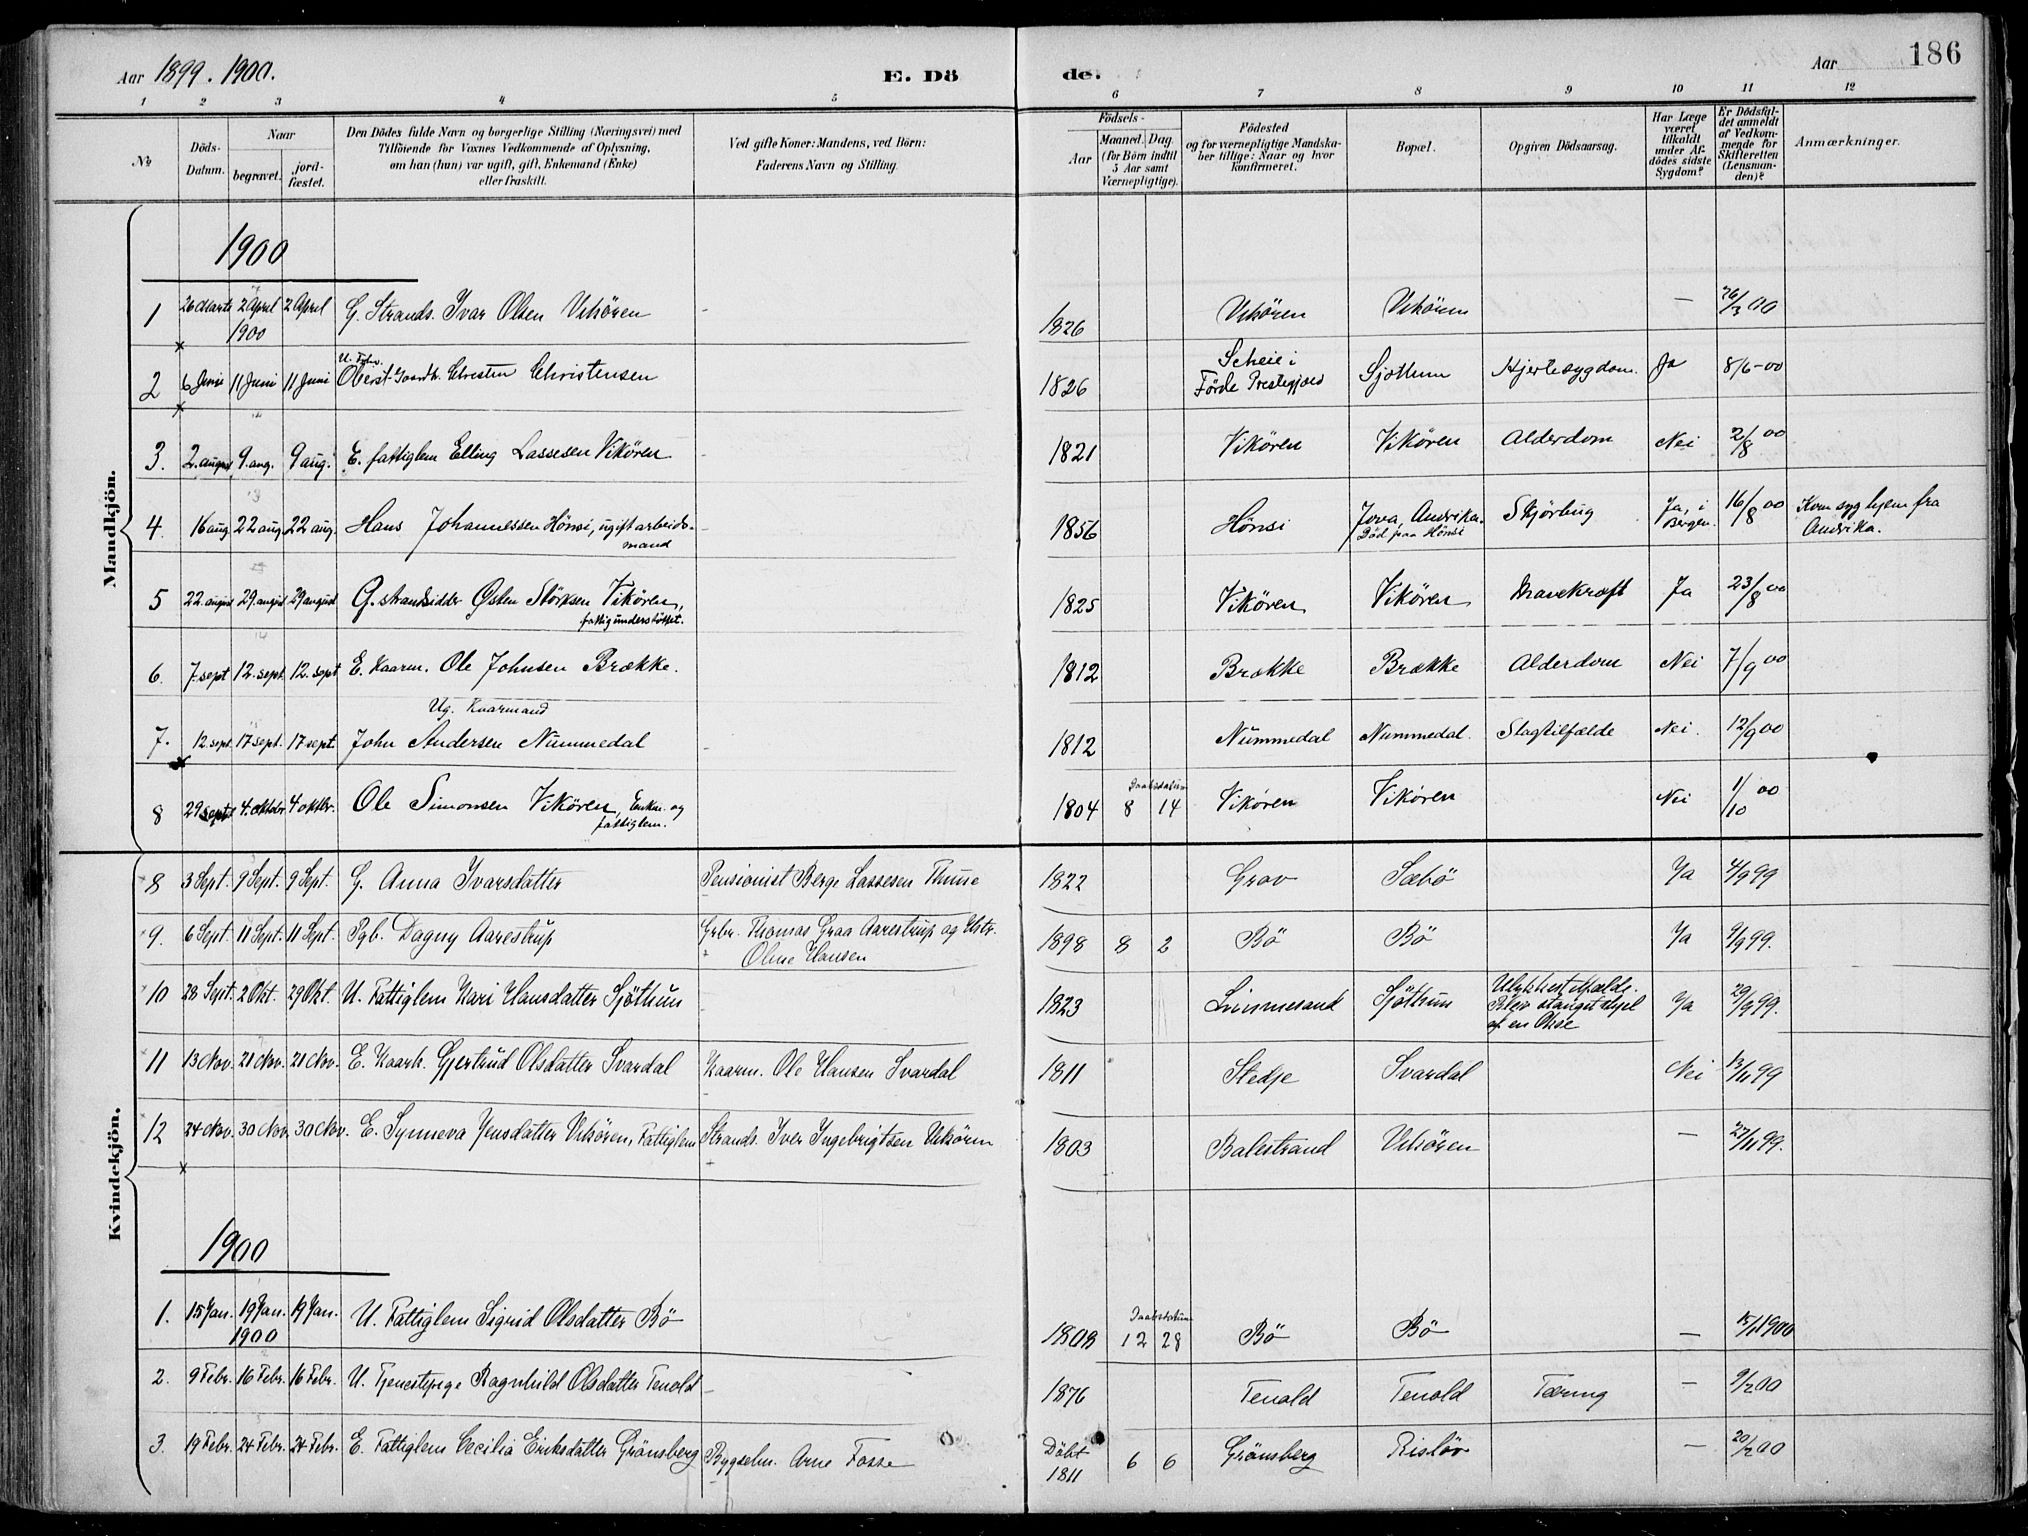 Aar 1899. 1900.
E. Dö
de.
Aar
186
1 2 3 4 5 6 7 8 9 10 11 12
No
Döds-Datum.
Naar
begravet.
jord-fæstet.
Den Dödes fulde Navn og borgerlige Stilling (Næringsvei) med
Tilföiende for Voxnes Vedkommende af Oplysning,
om han (hun) var ugift, gift, Enkemand (Enke)
eller fraskilt.
Ved gifte Koner: Mandens, ved Börn:
Faderens Navn og Stilling.
Födsels-
Aar
Maaned. Dag.
(for Börn indtil
5 Aar samt
Værnepligtige).
Födested
og for værnepligtige Mandska-
ber tillige: Naar og hvor
konfirmeret.
Bopæl.
Opgiven Dödsaarsag.
Har Læge
været
tilkaldt
under Af-
dödes sidste
Sygdom?
Er Dödsfal-
det anmeldt
af Vedkom-
mende for
Skifteretten
(Lensman-
den)?
Anmærkninger.
Mandkjön.
1900
1 26 Marts 2 April 1900 2 April G. Strands. Ivar Olsen Vikören - 1826 Vikören Vikören — 26/3 00
2 6 Juni 11 Juni 11 Juni Christensen 1826 Scheie i Förde Prestegjæld Sjøthun Hjertesygdom. Ja 8/6-00
3. 2. august 9. aug. 9 aug. E. fattiglem Elling Lassesen Vikören - 1821 Vikören Vikören Alderdom Nei 2/8 00
4. 16 aug 22 aug 22 aug. Hans Johannessen Hönsi, ugift arbeids-mand 1856 Hönsi Død paa Hönsi Skjörbug Ja, i Bergen. 16/8 00 Kom syg hjem fra
5 22. august 29. august 29 august G. strandsidder Østen Vikören, fattigunderstöttet. - 1825 Vikören Vikören Mavekræft Ja 23/8 00
6. 7. sept 12. sept. 12. sept E. Kaarm. Ole Johnsen Brække. 1812 Brække Brække Alderdom Nei 7/9 00
7. 12. sept. 17 sept. 17 sept. Ug. Kaarmand John Andersen Nummedal - 1812 Nummedal Nummedal. Slagtilfælde Nei. 12/9 00
8 29 sept 4. oktober 4 oktbr. Ole Simonsen Vikören, Enkm. og fattiglem. 1804 Daabsdatum 8 14 Vikören Vikören Nei 1/10 00
Kvindekjön.
8 3 Sept. 9 Sept. 9 Sept. G. Anna Ivarsdatter Pensionist Berge Lassesen Thuse 1822 Grov Sæbö Ja 4/9 99
9. 6 Sept. 11 Sept. 11 Sept. Pgb. Dagny Aarestrup Grbr. Thomas Graa Aarestrup og Hstr. Oline Hansen 1898 8 2 Bö Bö Ja 9/9 99.
10 28 Sept. 2 Okt. 29 Okt. U. Fattiglem Kari Hansdatter Sjöthun - 1823 Linmesand Sjöthun Ulykkestilfælde. Blev stanget ihjel af en Okse Ja 29/9 99.
11 13 Nov. 21 Nov. 21 Nov. E. Kaark. Gjertrud Olsdatter Svardal Kaarm. Ole Hansen Svardal 1811 Stedje Svardal Nei 13/11 99
12 24 Nov. 30 Nov. 30 Nov. E. Synneva Jensdatter Vikören, Fattiglem Strands. Iver Ingebrigtsen Vikören 1803 Balestrand Vikören — 27/11 99.
1900
1. 15 Jan. 19 Jan. 1900 19 Jan. U. Fattiglem Sigrid Olsdatter Bö 1808 Daabsdatum 12 28 Bö Bö — 15/1 1900
2. 9 Febr. 16 Febr. 16 Febr. U. Tjenestepige Ragnhild Olsdatter Tenold - 1876 Tenold Tenold Tæring — 9/2 00
3. 19 Febr. 24 Febr. 24 Febr. E. Fattiglem Cecilia Eriksdatter Grönsberg Bygselm. Arne Fosse Döbt 1811 6 6 Grönsberg Rislöv — 20/2 00